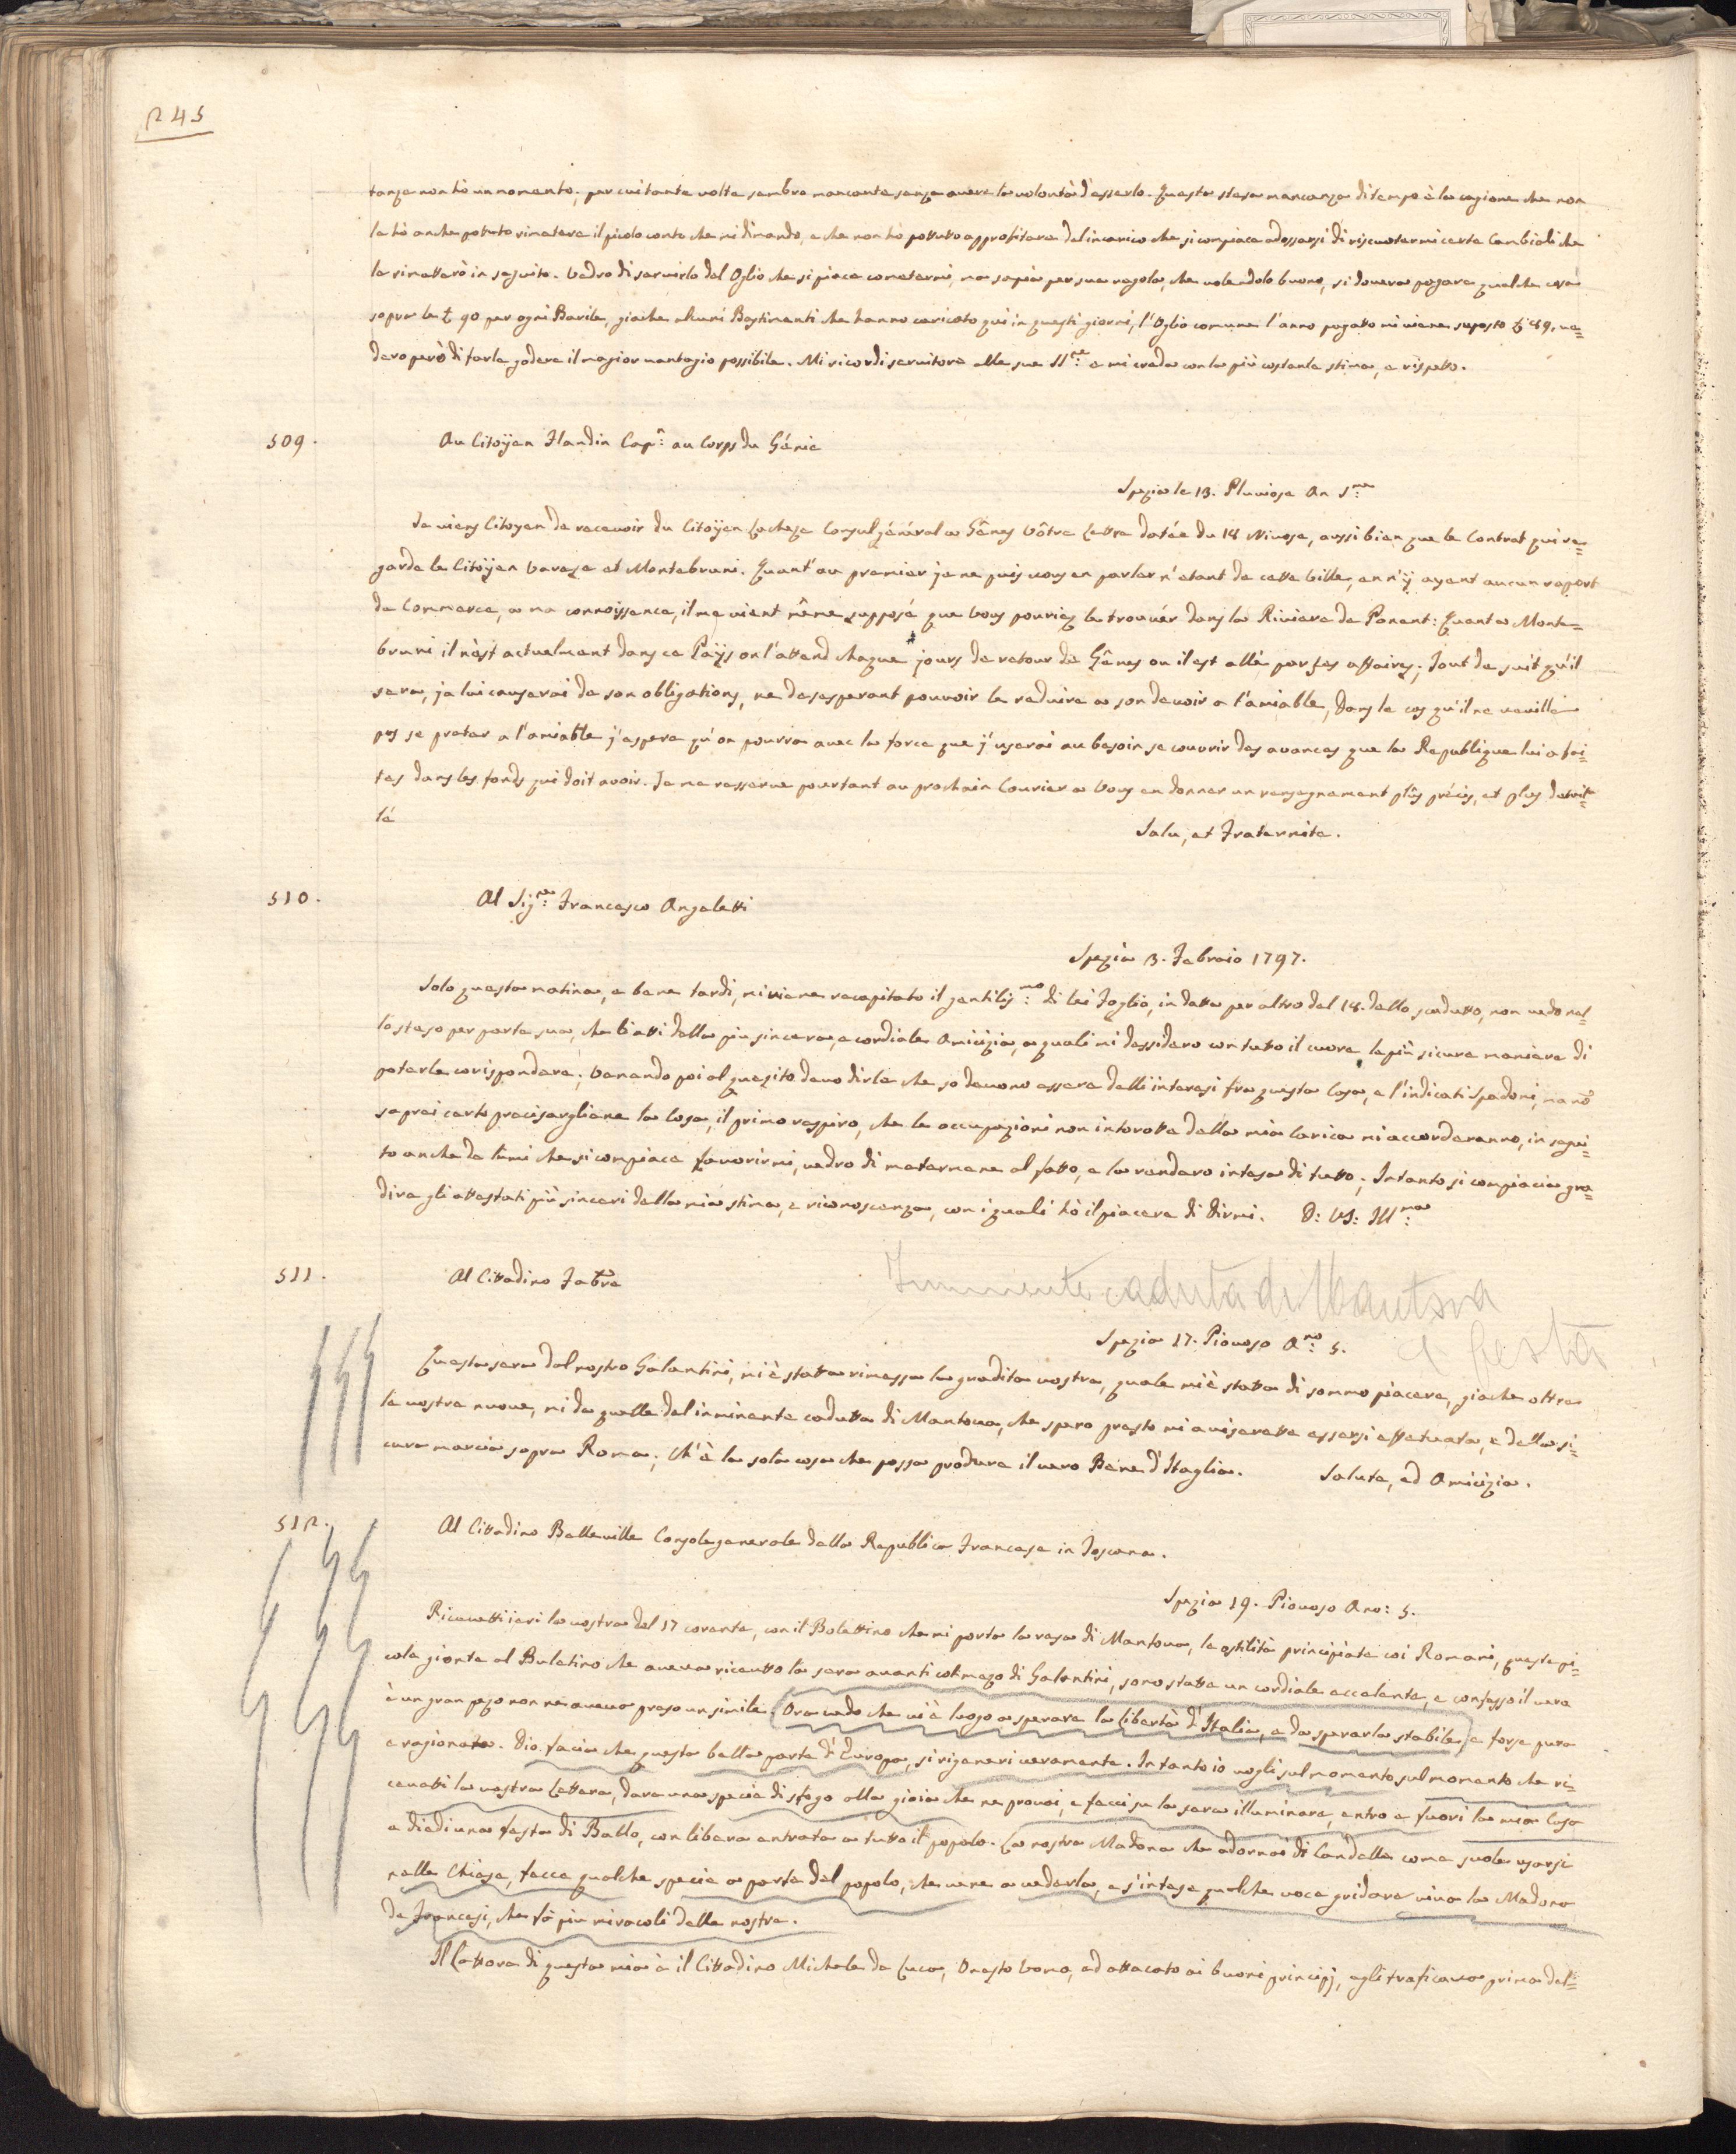 245
tanze non hò un momento, per cui tante volte sembro mancante senza avere la volontà d'esserlo. Questa stesa mancanza di tempo è la cagione che non
le hò anche potuto rimetere il picolo conto che mi dimanda, e che non hò pottutto approfitare del incarico che si compiace adossarsi di riscuotermi certe Cambiali che
le rimatterò in seguito. Vedro di servirlo del Oglio che si piace cometermi, ma sapia per sua regola, che volendolo buono, si dovera pagare qualche cosa
sopra le £ 90 per ogni Barile, giache alcuni Bastimenti che hanno caricato quì in questi giorni, l'Oglio comune l'anno pagatto mi viene suposto £ 89, ve=
dero però di farle godere il magior vantagio possibile. Mi ricordi servitore alle sue SS.re e mi creda con la più costante stima, e rispetto.
509. Au Citoÿen Flandin Cap.n au Corps du Génie
Spezia le 13. Pluviose An 5.me
Je viens Citoyen de recevoir du Citoÿen Lacheze Consul général a Gênes vôtre Lettre datée du 18 Nivose, aussi bien que le Contrat qui re=
garde le Citoÿen Vareze et Montebruni. Quant' au premier je ne puis vous en parler n'etant de cette Ville, en n'ÿ ayent aucun raport
de Commerce, a ma connoissance, il me vient même supposé que vous pouriez le trouvér dans la Riviere de Ponent: Quant a Monte=
bruni il n'èst actuelment dans ce Paÿs on l'attend chaque jours de retour de Gênes ou il est allé per ses affaires; Tout de suit qu'il
sera, je lui causerai de son obligations, ne desesperant pouvoir le reduire a son devoir a l'amiable, Dans le cas qu'il ne veuille
pas se preter a l'amiable j'espere qu'on pourra avec la force que j'userai au besoin se couvrir des avances que la Republique lui a fai=
tes dans les fonds qui doit avoir. Je me resserve pourtant au prochain Courier a Vous en donner un rensegnement plûs précis, et plus detail=
lé
Salu, et Fraternite.
510. Al Sig.re Francesco Angeletti
Spezia 3. Febraio 1797.
Solo questa matina, e bene tardi, mi viene recapitato il gentilis.mo di lei Foglio, in datta per altro del 18. dello scadutto, non vedo nel=
lo steso per parte sua, che li atti della piu sincera, e cordiale Amicizia, a quali mi dessidero con tutto il cuore le più sicure maniere di
poterle corispondere; Venendo poi al quezito devo dirle che so devono essere delli interesi fra questa Casa, e l'indicati Spadoni, ma nõ
saprei certo precisargliene la Cosa, il primo respiro, che le occupazioni non interotte della mia Carica mi accorderanno, in segui=
to anche de lumi che si compiace favorirmi, vedro di metermene al fatto, e la rendero intesa di tutto; Intanto si compiacia gra=
dire gli attestati più sinceri della mia stima, e riconoscenza, con i quali hò il piacere di dirmi. D: VS: Ill.ma
511. Al Cittadino Fabre
Imminente caduta di Mantova
e festa
Spezia 17. Piovoso A.no 5.
Questa sera dal nostro Galantini, mi è statta rimessa la gradita vostra, quale mi è statta di sommo piacere, giache oltre
le vostre nuove, mi da quelle del inminente cadutta di Mantova, che spero presto mi aviserette essersi effetuata, e della si=
cura marcia sopra Roma; Ch'è la sola cosa che possa produre il vero Bene d'Itaglia. Salute, ed Amicizia.
512. Al Cittadino Belleville Console generale della Republica Francese in Toscana.
Spezia 19. Piovoso Ano: 5.
Ricevetti ieri la vostra del 17 corente, con il Boletino che mi porta la resa di Mantova, le ostilità principiate coi Romani, queste pi=
cole gionte al Buletino che aveva ricevutto la sera avanti col mezo di Galantini, sono statte un cordiale eccelente, e confesso il vero
è un gran pezo non ne avevo preso un simile. Ora vedo che vi è luogo a sperare la libertà d'Italia, e da sperarla stabile, e forse pura
e ragionata. Dio facia che questa bella parte d'Europa, si rigeneri veramente. Intanto io vogli sul momento sul momento che ri=
cevetti la vostra Lettera, dare una specie di sfogo alla gioia che ne provai, e feci su la sera illuminare, entro e fuori la mia Casa
e diedi una festa di Ballo, con libera entrata a tutto il popolo. La nostra Madona che adornai di Candelle come suole usarsi
nelle Chiese, fecce qualche specie a parte del popolo, che vene a vederla, e s'intese qualche voce gridare viva la Madona
de Francesi, che fà piu miracoli della nostra.
Il Lattore di questa mia è il Cittadino Michele da Luca, Onesto Uomo, ed attacato ai buoni principj, egli traficava prima del=